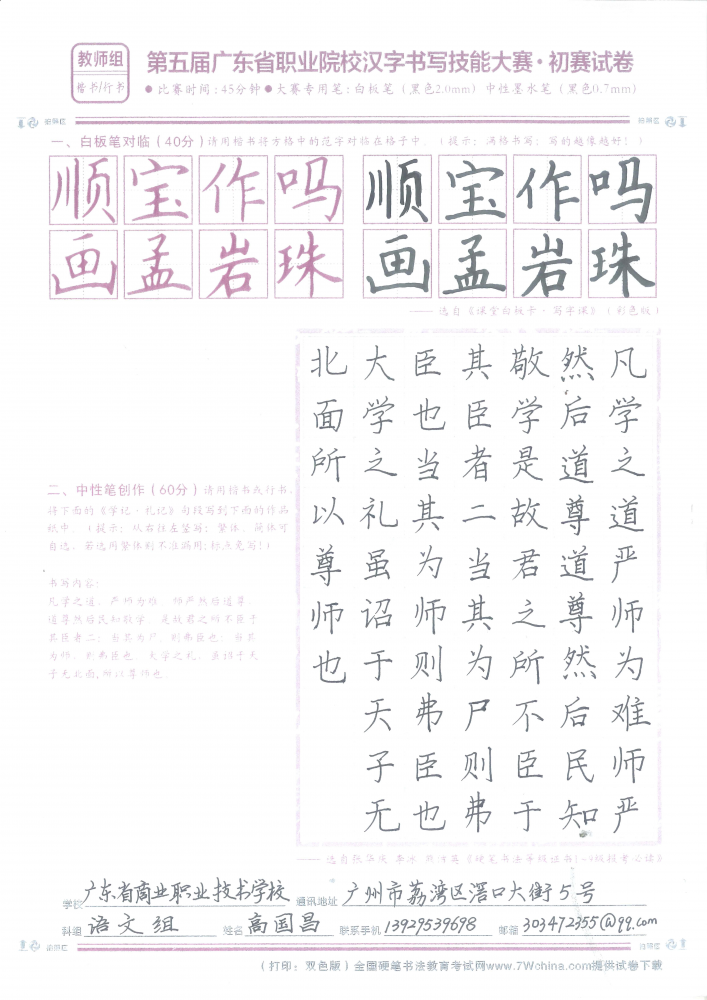 教师组
楷书/行书
第五届广东省职业院校汉字书写技能大赛·初赛试卷
●比赛时间：45分钟●大赛专用笔：白板笔（黑色2.0mm）中性墨水笔（黑色0.7mm）
一、白板笔对临（40分）请用楷书将方格中的范字对临在格子中。（提示：满格书写；写的越像越好！）
顺宝作吗 顺宝作吗
画孟岩珠 画孟岩珠
——选自《课堂白板字·写字课》（彩色版）
二、中性笔创作（60分）请用楷书或行书，
将下面的《学记·礼记》句段写到下面的作品
纸中。（提示：从右往左竖写；繁体、简体可
自选，若选用繁体则不准混用；标点是写！）
书写内容：
凡学之道，严师为难。师严然后道尊，
道尊然后民知敬学。是故君之所不臣于
其臣者二：当其为尸，则弗臣也；当其
为师，则弗臣也。大学之礼，虽诏于天
子无北面，所以尊师也。
凡学之道严师为难师严
然后道尊道尊然后民知
敬学是故君之所不臣于
其臣者二当其为尸则弗
臣也当其为师则弗臣也
大学之礼虽诏于天子无
北面所以尊师也
学校 广东省商业职业技术学校 通讯地址 广州市荔湾区滘口大街5号
科组 语文组 姓名 高国昌 联系手机 13929539698 邮箱 303472355@qq.com
（打印：双色版）全国硬笔书法教育考试网www.7Wchina.com提供试卷下载